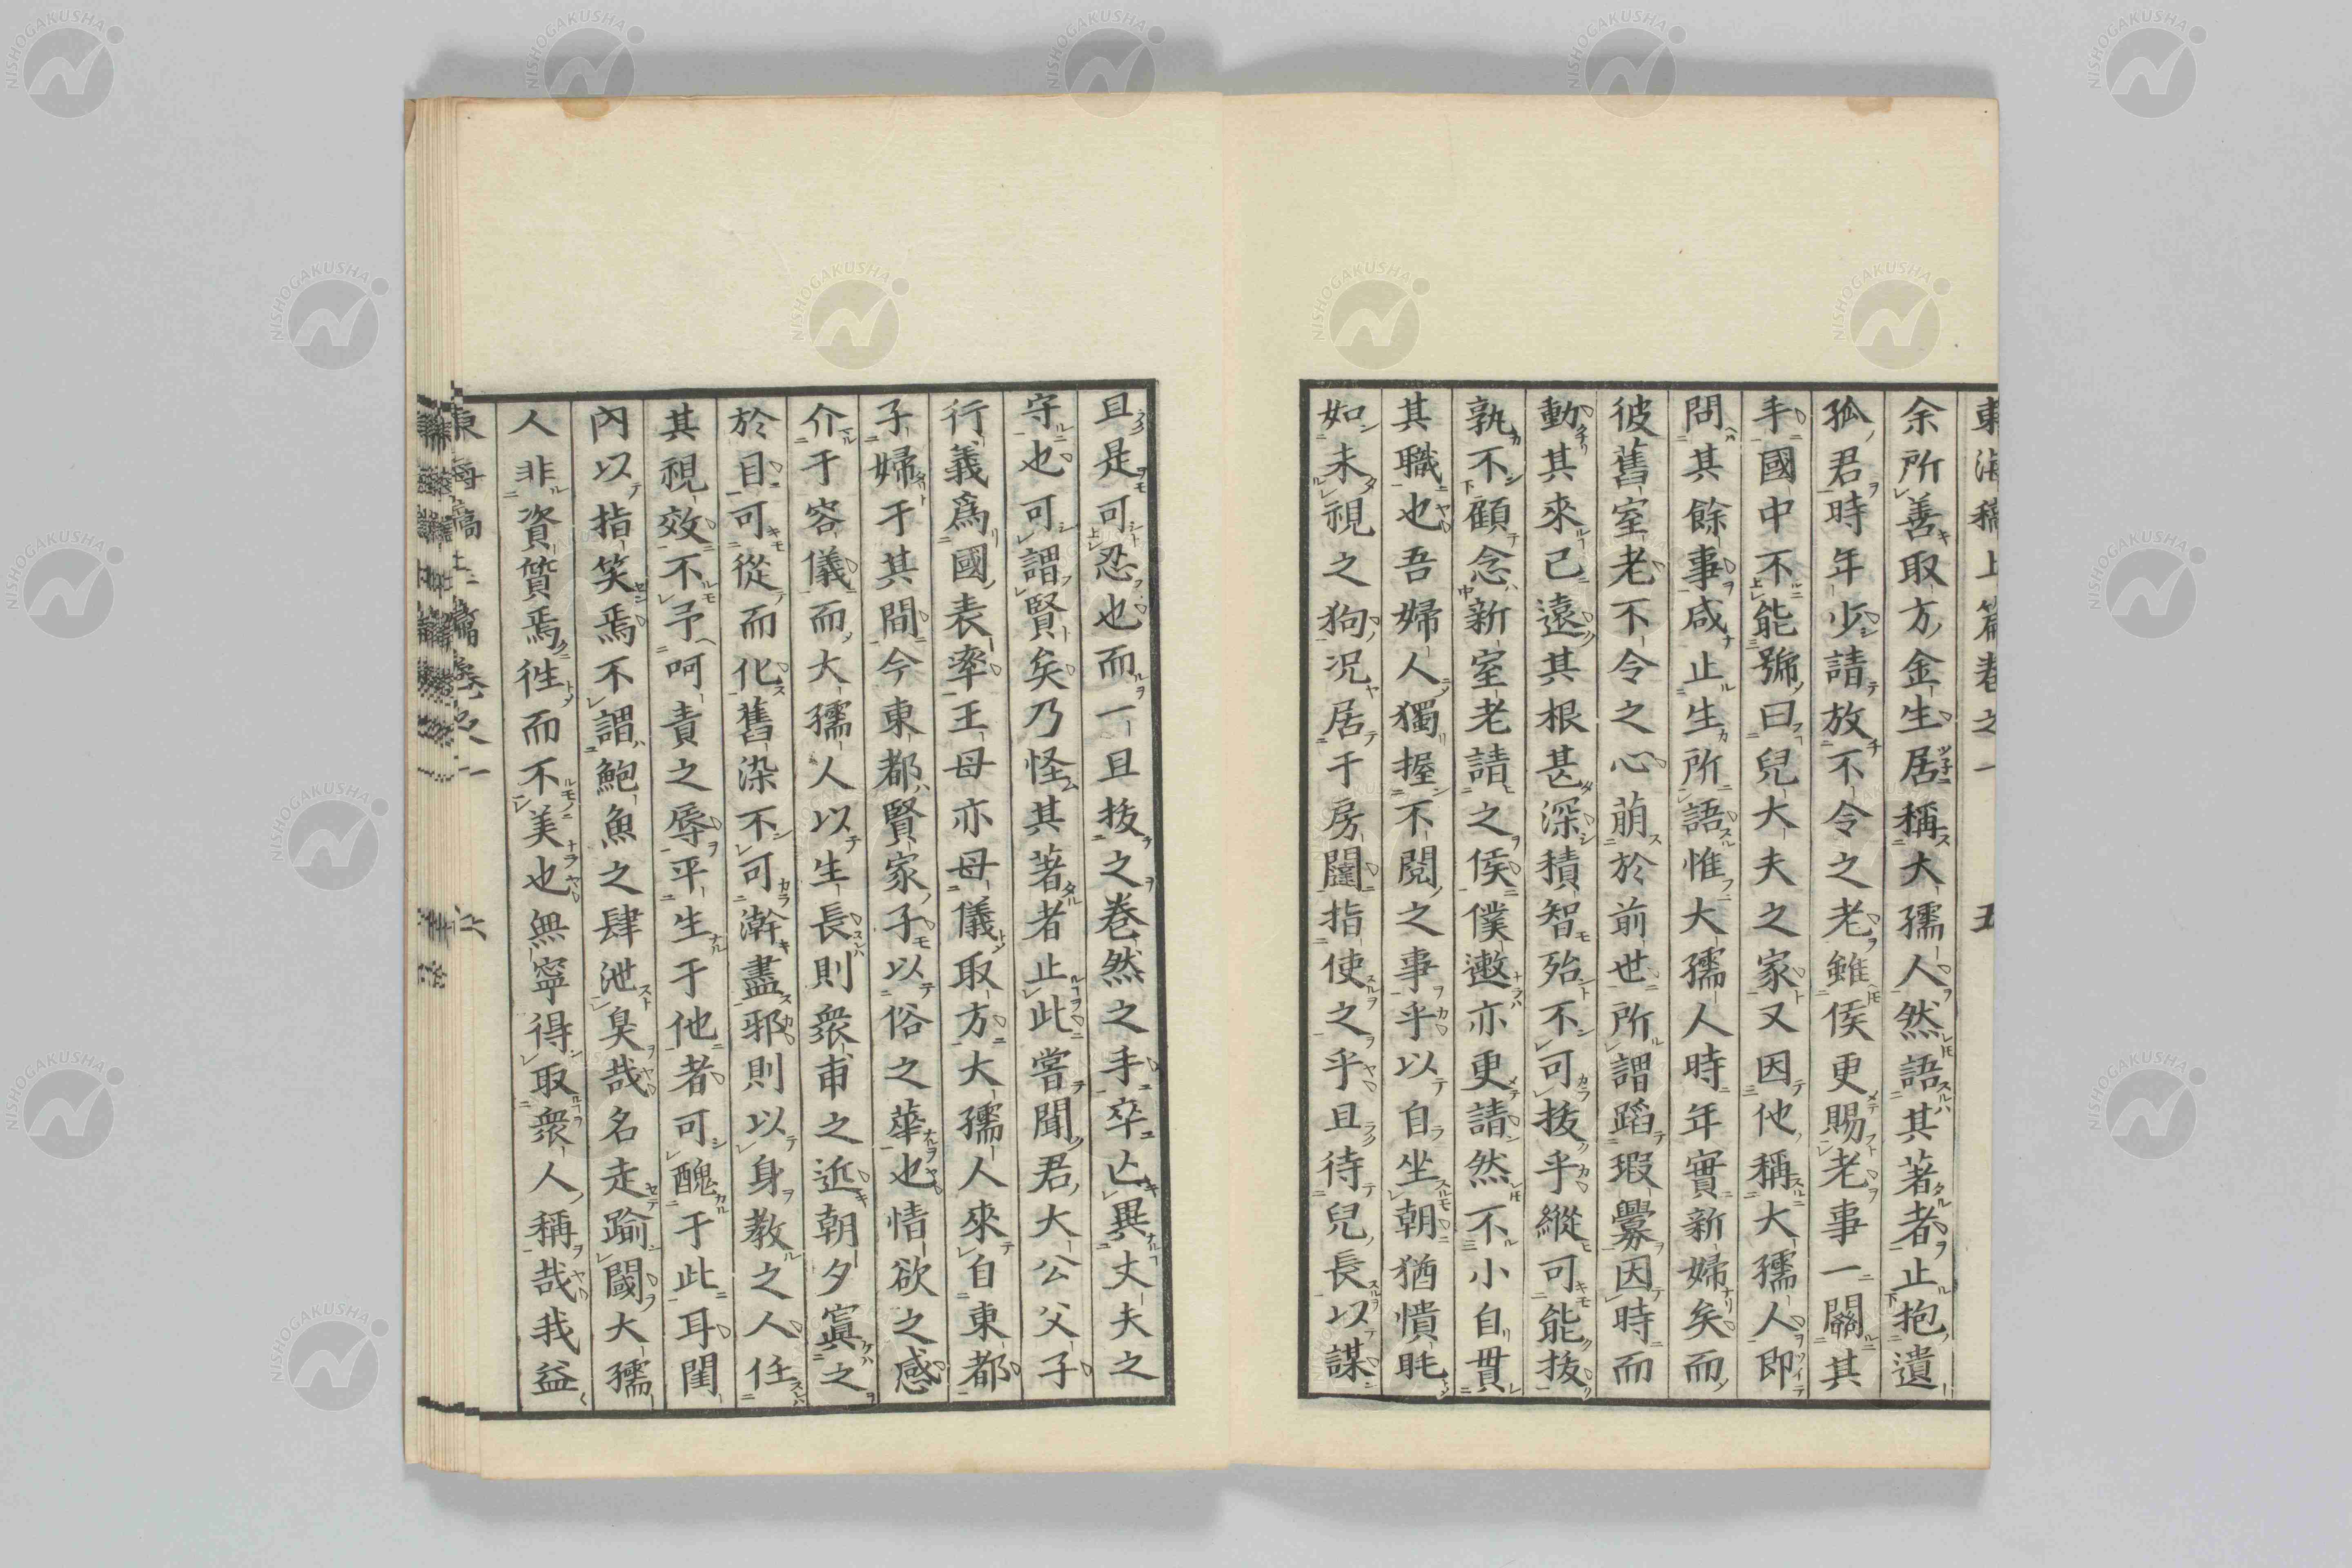 東海稿上篇卷之一 五
余所善取方金生居稱大孺人然語其著者止抱遺
孤君時年少請放不令之老雖侯更賜老事一關其
手國中不能號曰兒大夫之家又因他稱大孺人即
問其餘事咸止生所語惟大孺人時年實新婦矣而
彼舊室老不令之心萠於前世所謂蹈瑕釁因時而
動其來已遠其根甚深積智殆不可拔乎縱可能拔
孰不顧念新室老請之侯僕遬亦更請然不小自貫
其職也吾婦人獨握不閱之事乎以自坐朝猶憒眊
如未視之狗况居于房闥指使之乎且待兒長以謀
且是可忍也而一且拔之卷然之手卒亡異丈夫之
守也可謂賢矣乃怪其著者止此嘗聞君大公父子
行義爲國表率王母亦母儀取方大孺人來自東都
子婦于其間今東都賢家子以俗之華也情欲之感
介于容儀而大孺人以生長則衆甫之近朝夕寘之
於目可從而化舊染不可澣盡邪則以身教之人任
其視效不予呵責之辱平生于他者可醜于此耳閨
內以指笑焉不謂鮑魚之肆泄臭哉名走踰閾大孺
人非資質焉徃而不美也無寧得取衆人稱哉我益
東海稿上篇卷之一 六
NISHOGAKUSHA